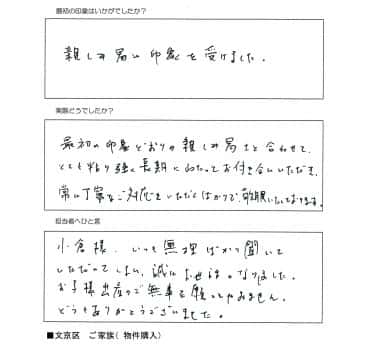 最初の印象はいかがでしたか？
親しみ易い印象を受けました。
実際どうでしたか？
最初の印象どおりの親しみ易さと合わせて、
とても粘り強く長期にわたってお付き合いいただき、
常に丁寧なご対応をいただくばかりで、いたしております。
担当者へひと言
小倉様、いつも無理ばかり聞いて
いただいてしまい、誠にお世話になりました。
お子様出産のご無事を願ってやみません。
どうもありがとうございました。
■文京区　ご家族（ 物件購入）